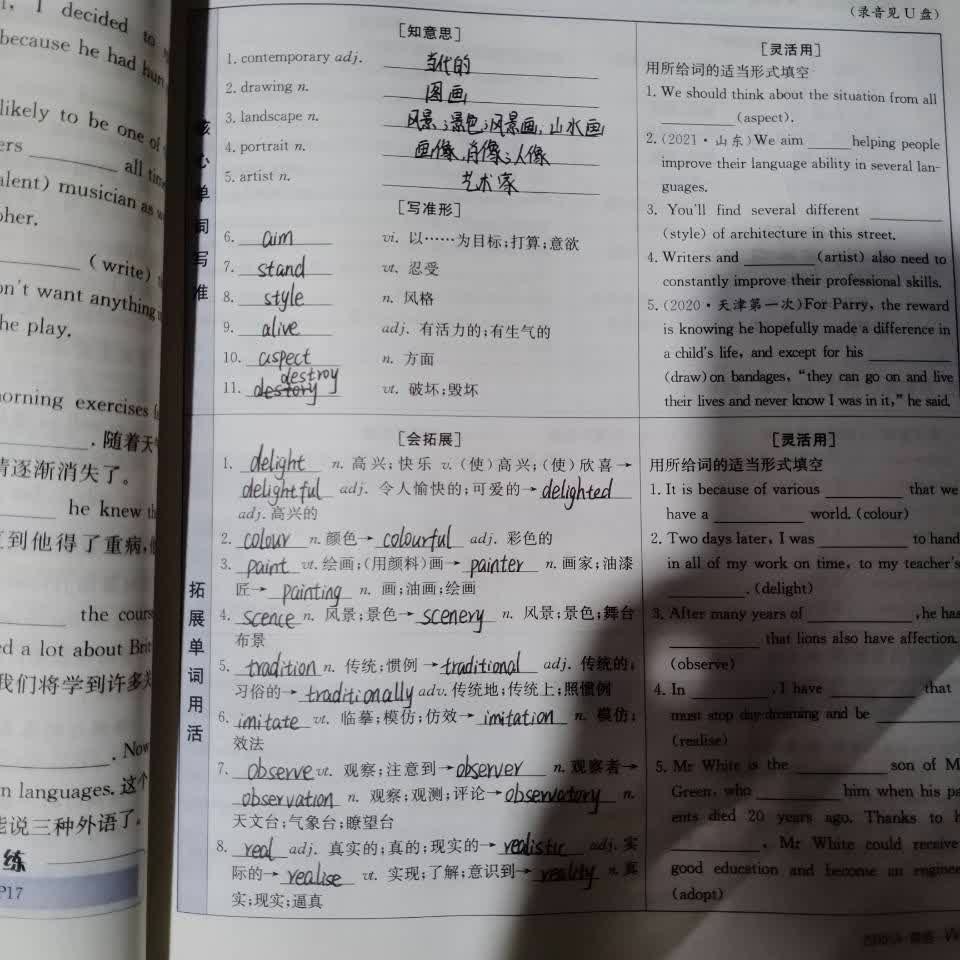 I decided to
because he had hurt
likely to be one of
ers ______ all time
alent) musician as w
pher.
______ (write)
on't want anything
he play.
orning exercises
______. 随着天
情逐渐消失了。
______ he knew th
到他得了重病,
______ the cours
ed a lot about Brit
我们将学到许多关
______. Now
n languages. 这个
能说三种外语了。
练
P17
(录音见 U 盘)
核心单词写准
[知意思]
1. contemporary adj. 当代的
2. drawing n. 图画
3. landscape n. 风景;景色;风景画,山水画
4. portrait n. 画像,肖像;人像
5. artist n. 艺术家
[写准形]
6. aim vi. 以……为目标;打算;意欲
7. stand vt. 忍受
8. style n. 风格
9. alive adj. 有活力的;有生气的
10. aspect n. 方面
destroy
11. destory vt. 破坏;毁坏
[灵活用]
用所给词的适当形式填空
1. We should think about the situation from all
______ (aspect).
2. (2021·山东)We aim ______ helping people
improve their language ability in several lan-
guages.
3. You'll find several different ______
(style) of architecture in this street.
4. Writers and ______ (artist) also need to
constantly improve their professional skills.
5. (2020·天津第一次)For Parry, the reward
is knowing he hopefully made a difference in
a child's life, and except for his ______
(draw) on bandages, “they can go on and live
their lives and never know I was in it,” he said.
拓展单词用活
[会拓展]
1. delight n. 高兴;快乐 v. (使)高兴;(使)欣喜→
delightful adj. 令人愉快的;可爱的→delighted
adj. 高兴的
2. colour n. 颜色→colourful adj. 彩色的
3. paint vt. 绘画;(用颜料)画→painter n. 画家;油漆
匠→painting n. 画;油画;绘画
4. scence n. 风景;景色→scenery n. 风景;景色;舞台
布景
5. tradition n. 传统;惯例→traditional adj. 传统的;
习俗的→traditionally adv. 传统地;传统上;照惯例
6. imitate vt. 临摹;模仿;仿效→imitation n. 模仿;
效法
7. observe vt. 观察;注意到→observer n. 观察者→
observation n. 观察;观测;评论→observatory n.
天文台;气象台;瞭望台
8. real adj. 真实的;真的;现实的→realistic adj. 实
际的→realise vt. 实现;了解;意识到→reality n. 真
实;现实;逼真
[灵活用]
用所给词的适当形式填空
1. It is because of various ______ that we
have a ______ world. (colour)
2. Two days later, I was ______ to hand
in all of my work on time, to my teacher's
______. (delight)
3. After many years of ______, he has
______ that lions also have affection.
(observe)
4. In ______, I have ______ that
must stop day-dreaming and be ______
(realise)
5. Mr White is the ______ son of M
Green, who ______ him when his pa
ents died 20 years ago. Thanks to h
______, Mr White could receive
good education and become an enginee
(adopt)